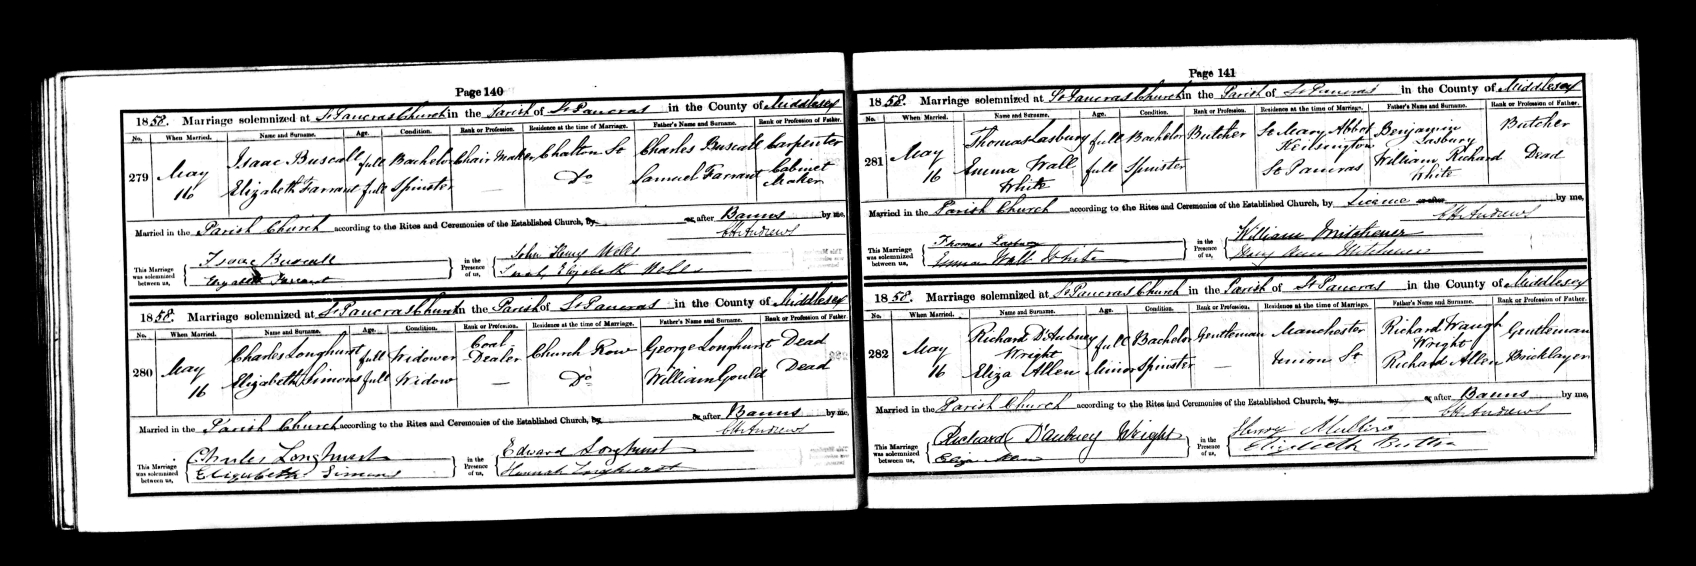 Page 140
1858. Marriage solemnized at St Pancras Church in the Parish of St Pancras in the County of Middlesex
No. When Married. Name and Surname. Age. Condition. Rank or Profession. Residence at the time of Marriage. Father's Name and Surname. Rank or Profession of Father.
279 May 16 Isaac Buscall full Bachelor Chair Maker Chalton St Charles Buscall Carpenter
Elizabeth Farrant full Spinster — Do Samuel Farrant Cabinet Maker
Married in the Parish Church according to the Rites and Ceremonies of the Established Church, by or after Banns by me,
C H Andrews
This Marriage was solemnized between us, Isaac Buscall Elizabeth Farrant in the Presence of us, John Henry Wells Sarah Elizabeth Wells
1858. Marriage solemnized at St Pancras Church in the Parish of St Pancras in the County of Middlesex
No. When Married. Name and Surname. Age. Condition. Rank or Profession. Residence at the time of Marriage. Father's Name and Surname. Rank or Profession of Father.
280 May 16 Charles Longhurst full Widower Coal Dealer Church Row George Longhurst Dead
Elizabeth Simons full Widow — Do William Gould Dead
Married in the Parish Church according to the Rites and Ceremonies of the Established Church, by or after Banns by me,
C H Andrews
This Marriage was solemnized between us, Charles Longhurst Elizabeth Simons in the Presence of us, Edward Longhurst Hannah Longhurst
Page 141
1858. Marriage solemnized at St Pancras Church in the Parish of St Pancras in the County of Middlesex
No. When Married. Name and Surname. Age. Condition. Rank or Profession. Residence at the time of Marriage. Father's Name and Surname. Rank or Profession of Father.
281 May 16 Thomas Lasbury full Bachelor Butcher St Mary Abbot Kensington Benjamin Lasbury Butcher
Emma Wall White full Spinster St Pancras William Richard White Dead
Married in the Parish Church according to the Rites and Ceremonies of the Established Church, by Licence or after by me,
C H Andrews
This Marriage was solemnized between us, Thomas Lasbury Emma Wall White in the Presence of us, William Mitchener Mary Ann Mitchener
1858. Marriage solemnized at St Pancras Church in the Parish of St Pancras in the County of Middlesex
No. When Married. Name and Surname. Age. Condition. Rank or Profession. Residence at the time of Marriage. Father's Name and Surname. Rank or Profession of Father.
282 May 16 Richard D'Aubney Wright full Bachelor Gentleman Manchester Richard Waugh Wright Gentleman
Eliza Allen Minor Spinster — Union St Richard Allen Bricklayer
Married in the Parish Church according to the Rites and Ceremonies of the Established Church, by or after Banns by me,
C H Andrews
This Marriage was solemnized between us, Richard D'Aubney Wright Eliza Allen in the Presence of us, Henry Elizabeth